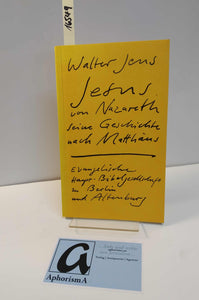 16549
Walter Jens
Jesus
von Nazareth
seine Geschichte
nach Matthäus
Evangelische
Haupt-Bibelgesellschaft
zu Berlin
und Altenburg
A
AphorismA